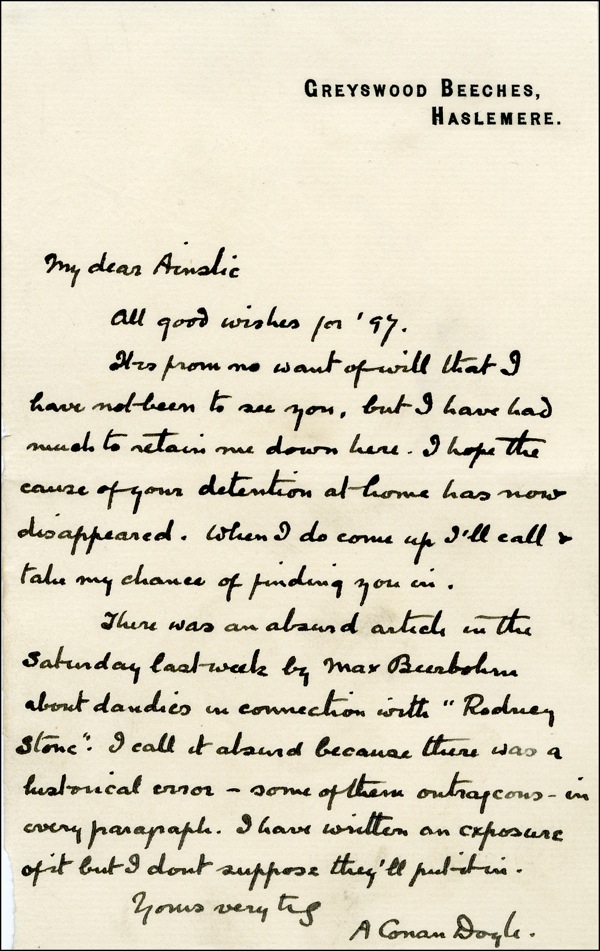 GREYSWOOD BEECHES,
HASLEMERE.
My dear Ainslie
All good wishes for '97.
It is from no want of will that I
have not been to see you, but I have had
much to retain me down here. I hope the
cause of your detention at home has now
disappeared. When I do come up I'll call &
take my chance of finding you in.
There was an absurd article in the
Saturday last week by Max Beerbohm
about dandies in connection with "Rodney
Stone". I call it absurd because there was a
historical error - some of them outrageous - in
every paragraph. I have written an exposure
of it but I dont suppose they'll put it in.
Yours very
A Conan Doyle.